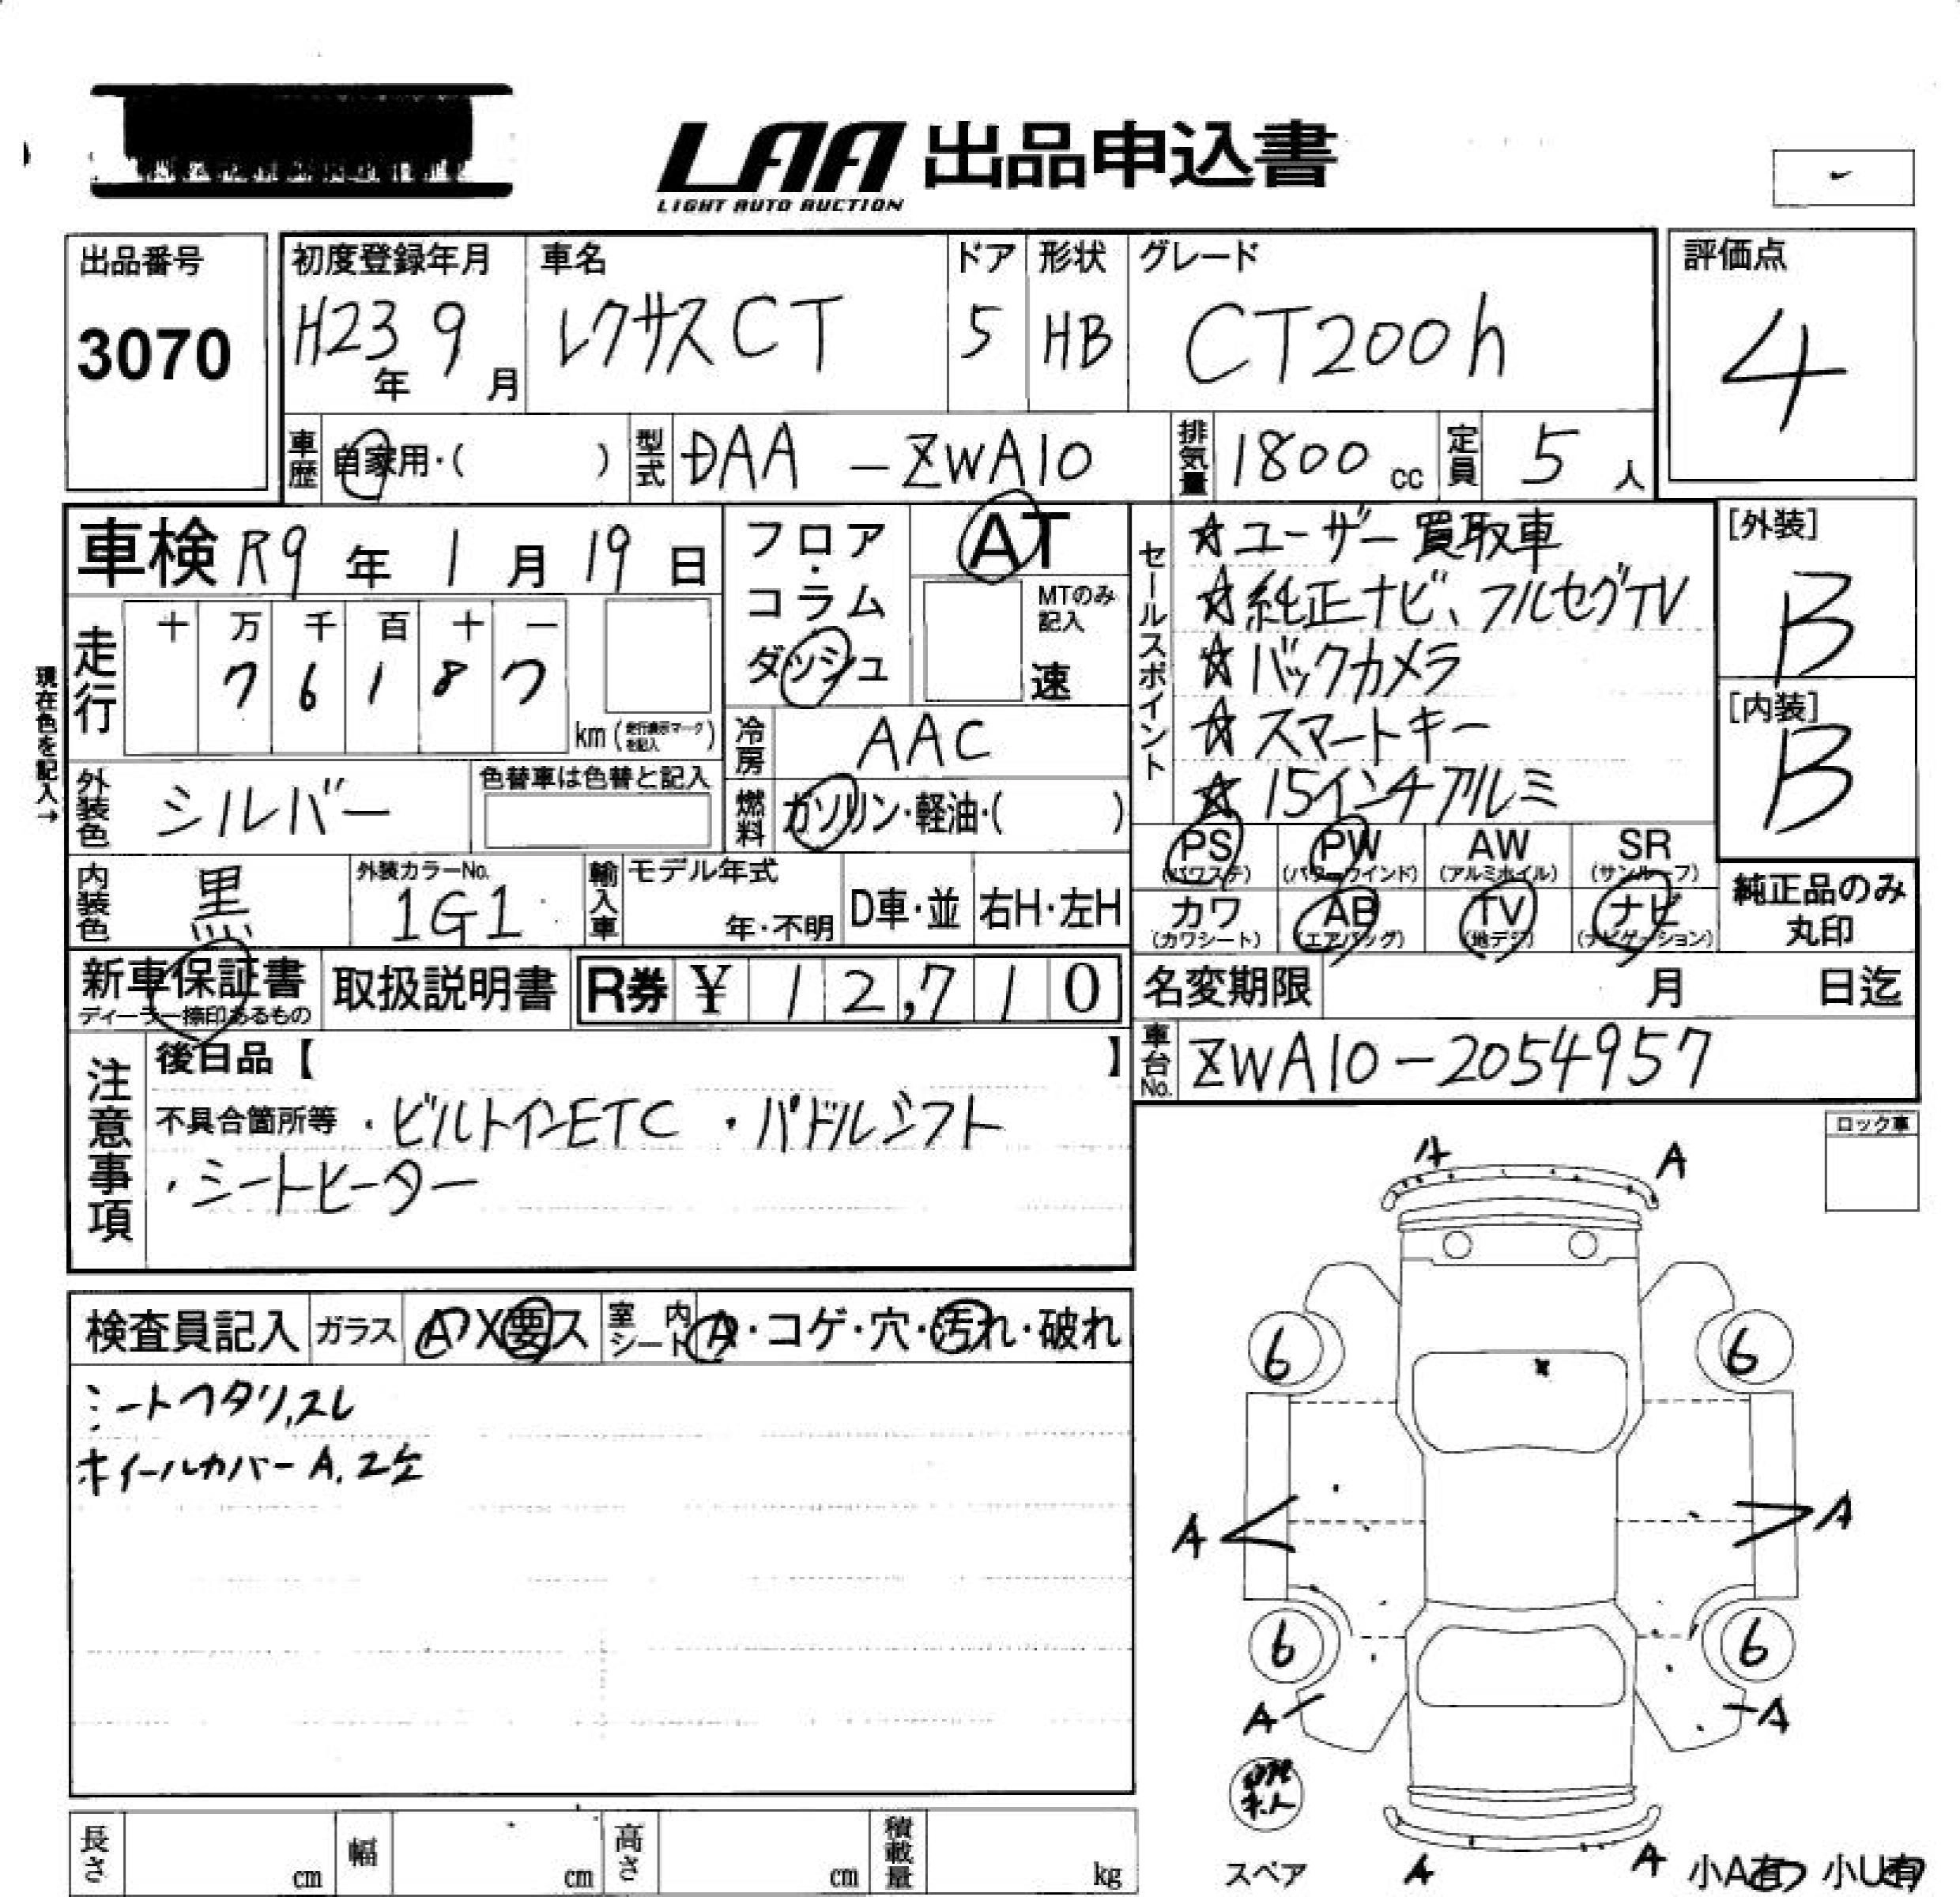 LAA 出品申込書
LIGHT AUTO AUCTION
出品番号
3070
初度登録年月
H23年 9月
車名
レクサスCT
ドア
5
形状
HB
グレード
CT200h
評価点
4
車歴 自家用・( )
型式 DAA-ZWA10
排気量 1800 cc
定員 5 人
車検 R9年 1月 19日
フロア・コラム ダッシュ
AT
MTのみ記入
速
走行
十 万 千 百 十 一
7 6 1 8 7
km(走行表示マークを記入)
現在色を記入→
冷房 AAC
燃料 ガソリン・軽油・( )
外装色 シルバー
色替車は色替と記入
内装色 黒
外装カラーNo.
1G1
輸入車
モデル年式
年・不明
D車・並
右H・左H
セールスポイント
☆ユーザー買取車
☆純正ナビ、フルセグTV
☆バックカメラ
☆スマートキー
☆15インチアルミ
[外装]
B
[内装]
B
PS (パワステ)
PW (パワーウインド)
AW (アルミホイル)
SR (サンルーフ)
カワ (カワシート)
AB (エアバッグ)
TV (地デジ)
ナビ (ナビゲーション)
純正品のみ丸印
新車保証書
ディーラー捺印あるもの
取扱説明書
R券 ¥ 12,710
名変期限 月 日迄
車台No. ZWA10-2054957
注意事項
後日品【 】
不具合箇所等 ・ビルトインETC ・パドルシフト
・シートヒーター
ロック車
検査員記入
ガラス A・X要ス
室内シート A・コゲ・穴・汚れ・破れ
シートヘタリ、スレ
ホイールカバーA.
A A
6 6
A A
6 6
A A
スペア
A A
小A有 小U有
長さ cm
幅 cm
高さ cm
積載量 kg